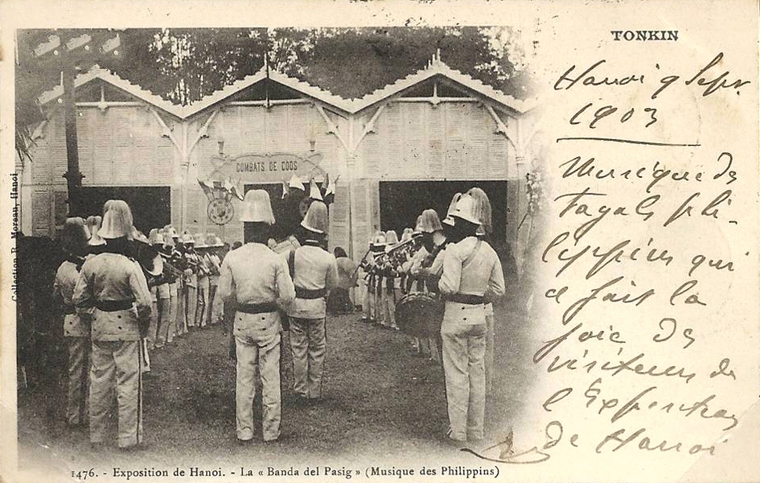 TONKIN
Hanoi 9 Sepr
1903
Musique de
Tagals phi-
lippins qui
a fait la
joie des
visiteurs de
l'Exposition
de Hanoi
COMBATS DE COQS
Collection P. Moreau, Hanoi
1476. - Exposition de Hanoi. - La « Banda del Pasig » (Musique des Philippins)